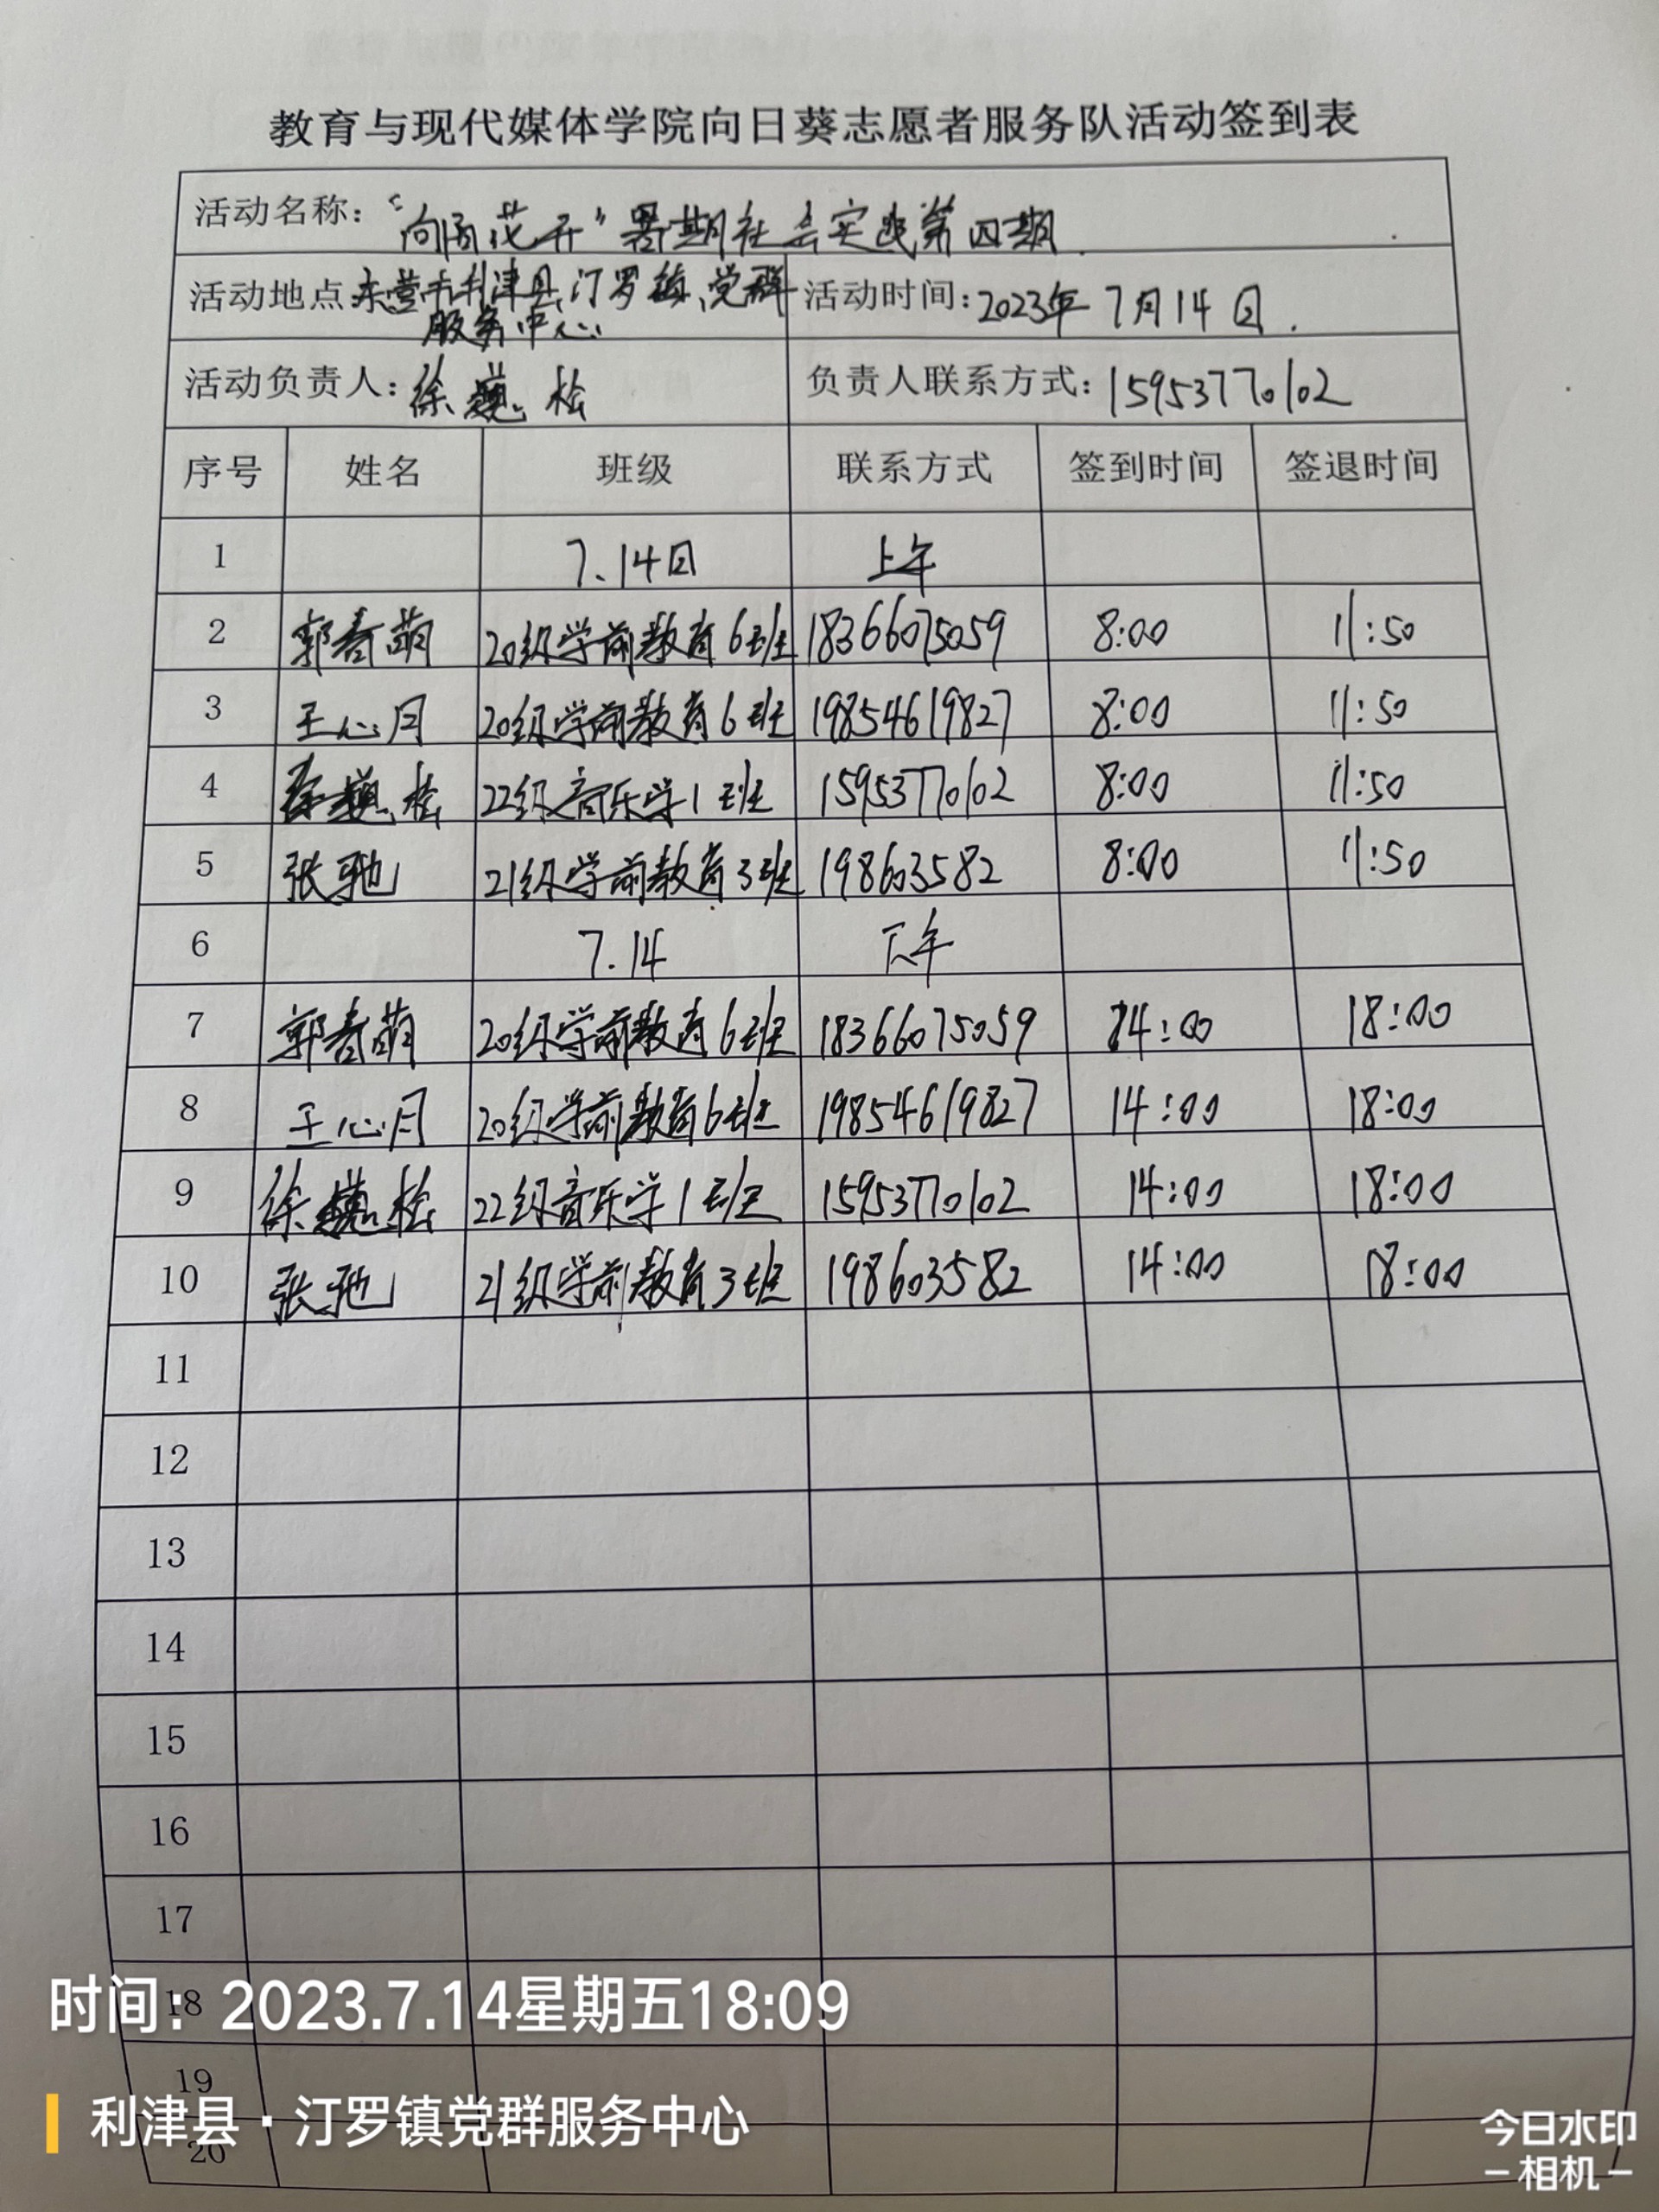 教育与现代媒体学院向日葵志愿者服务队活动签到表
活动名称：“向阳花开”暑期社会实践第四期
活动地点：东营市利津县汀罗镇党群服务中心 活动时间：2023年7月14日.
活动负责人：徐巍桧 负责人联系方式：15953770102
序号 姓名 班级 联系方式 签到时间 签退时间
1 7.14日 上午
2 郭春萌 20级学前教育6班 18366075059 8:00 11:50
3 王心月 20级学前教育6班 19854619827 8:00 11:50
4 徐巍桧 22级音乐学1班 15953770102 8:00 11:50
5 张驰 21级学前教育3班 198603582 8:00 11:50
6 7.14 下午
7 郭春萌 20级学前教育6班 18366075059 14:00 18:00
8 王心月 20级学前教育6班 19854619827 14:00 18:00
9 徐巍桧 22级音乐学1班 15953770102 14:00 18:00
10 张驰 21级学前教育3班 198603582 14:00 18:00
11
12
13
14
15
16
17
18
时间：2023.7.14星期五18:09
19
利津县·汀罗镇党群服务中心
20
今日水印
相机